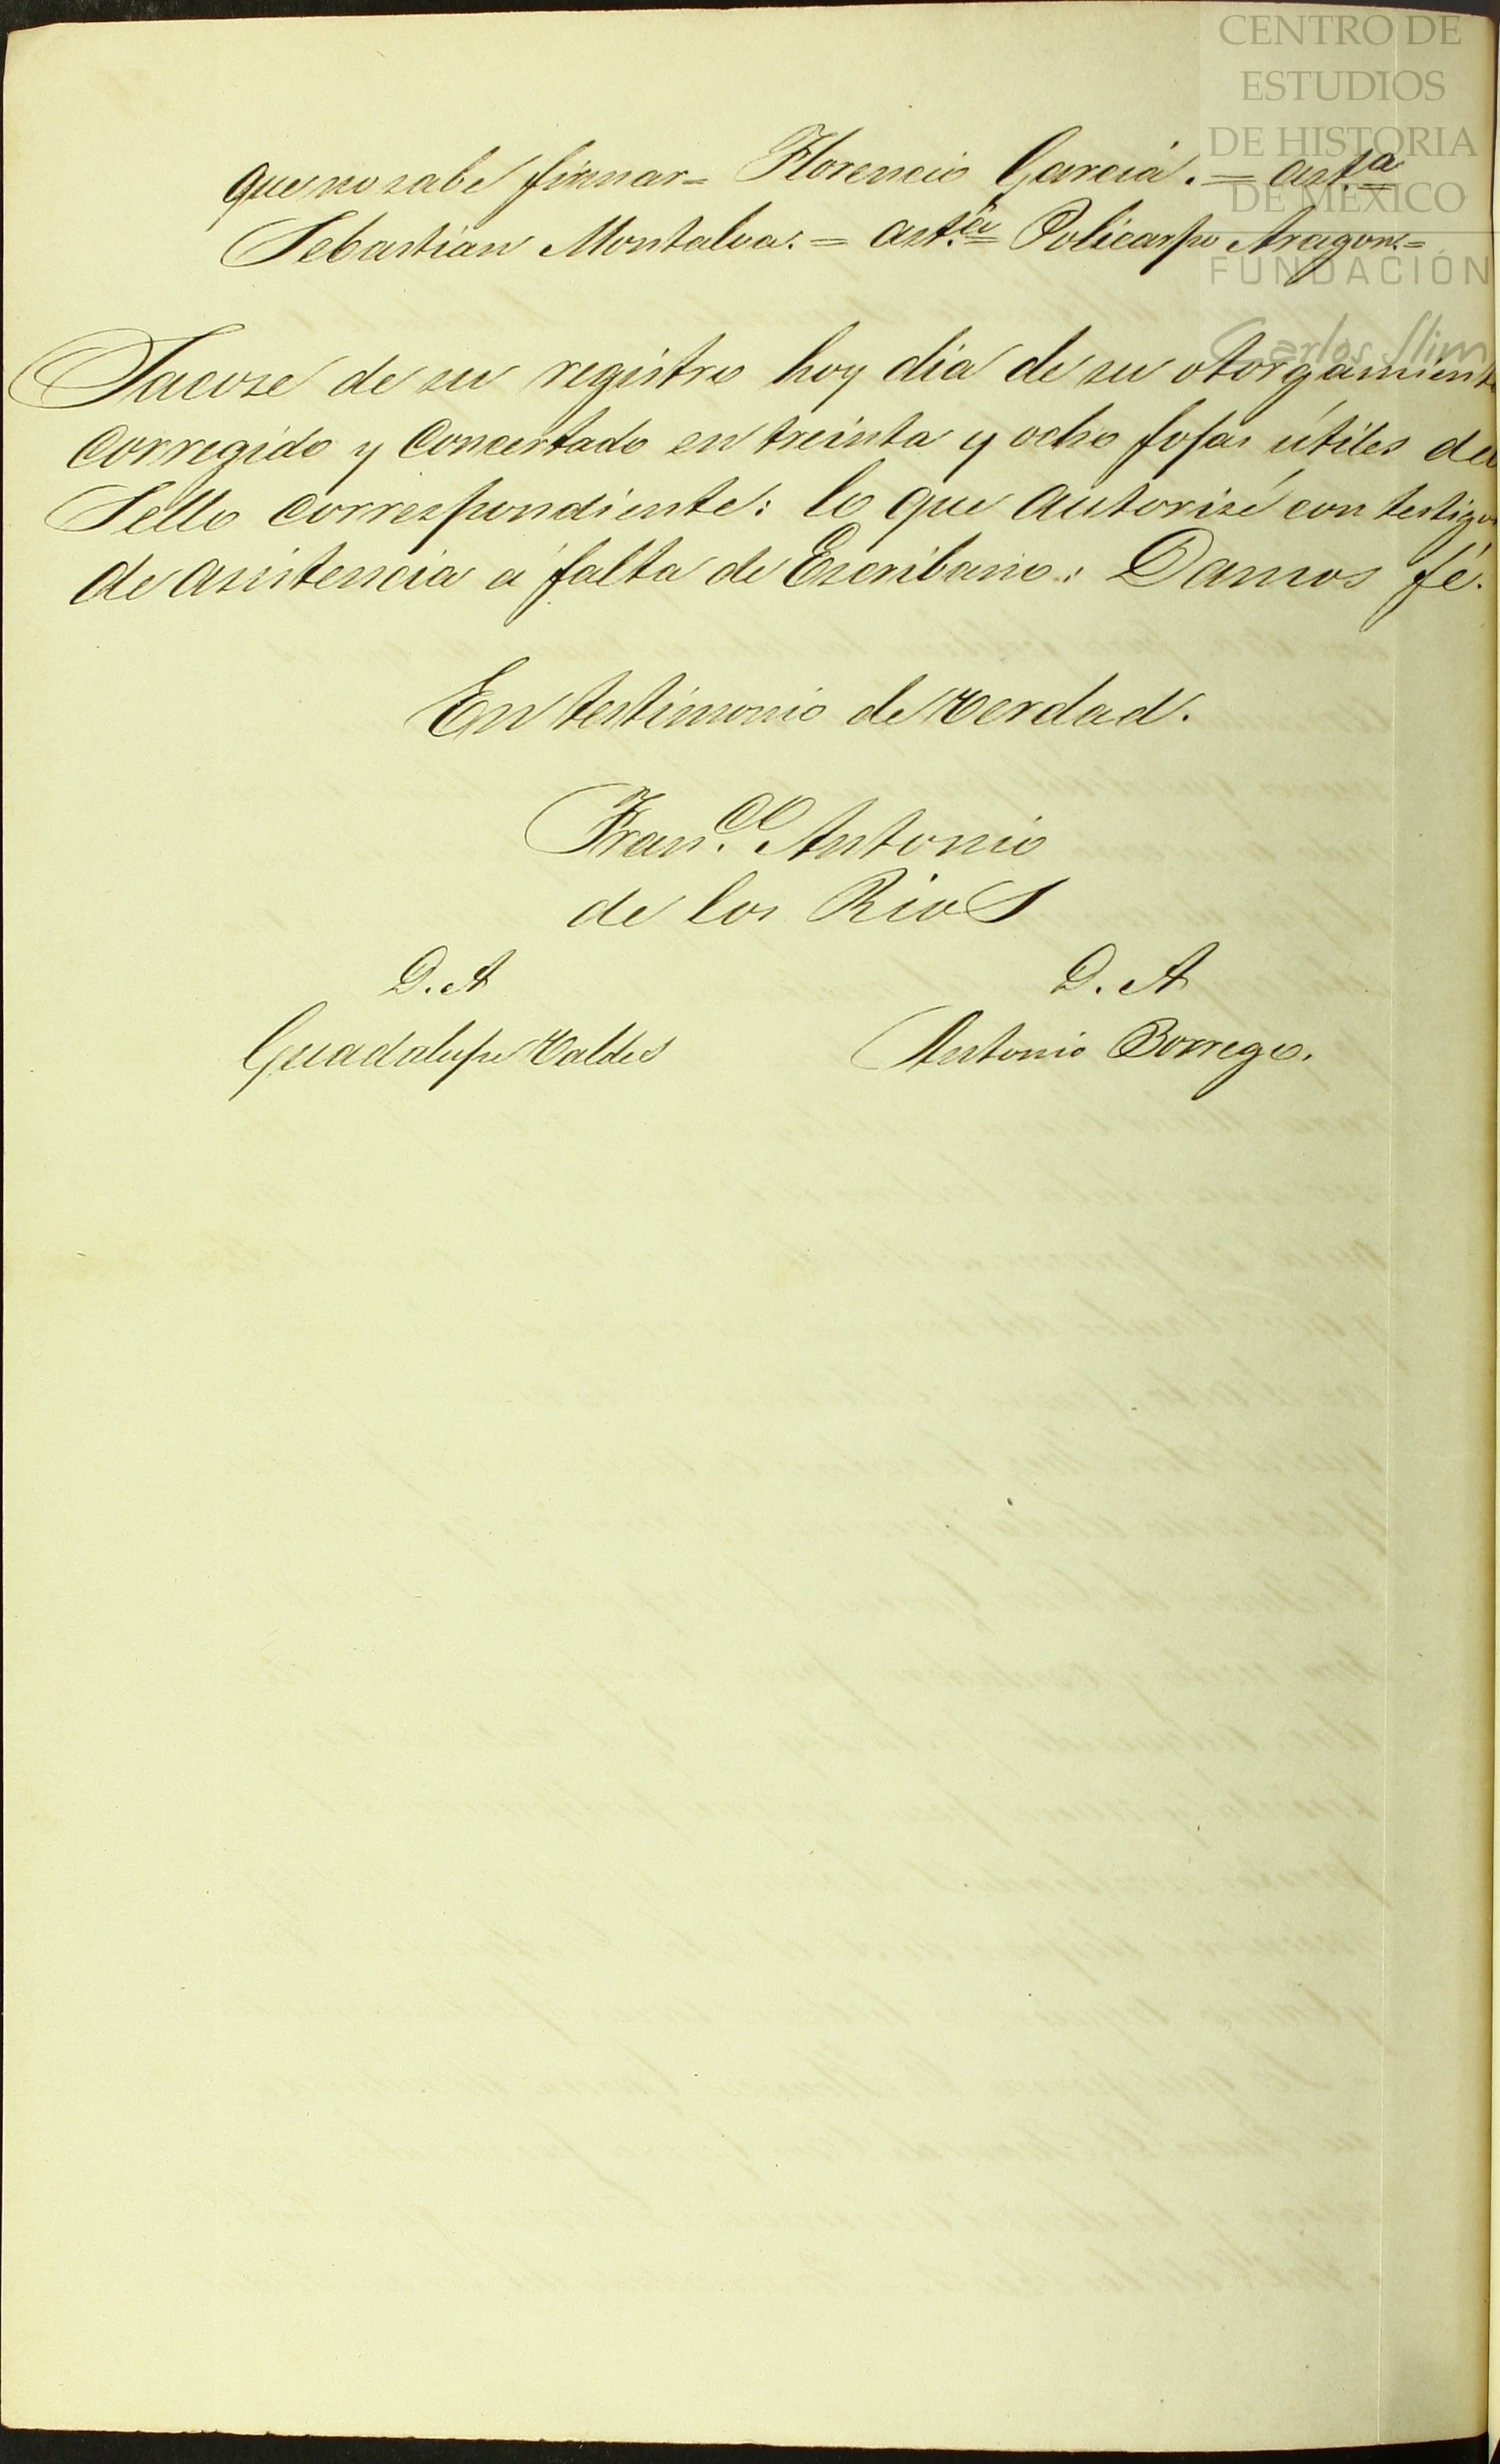 CENTRO DE
ESTUDIOS
DE HISTORIA
DE MÉXICO
FUNDACIÓN
Carlos Slim
que no sabe firmar = Florencio García. = ast.ª
Sebastian Montalva. = ast.ª Policarpo Aragon. =
Sacose de su registro hoy dia de su otorgamiento
corregido y concertado en treinta y ocho fojas útiles del
Sello correspondiente: lo que autorisé con testigos
de asistencia á falta de Escribano: Damos fé.
En testimonio de verdad.
Fran.co Antonio
de los Rios
D. A
D. A
Guadalupe Valdes
Antonio Borrego.